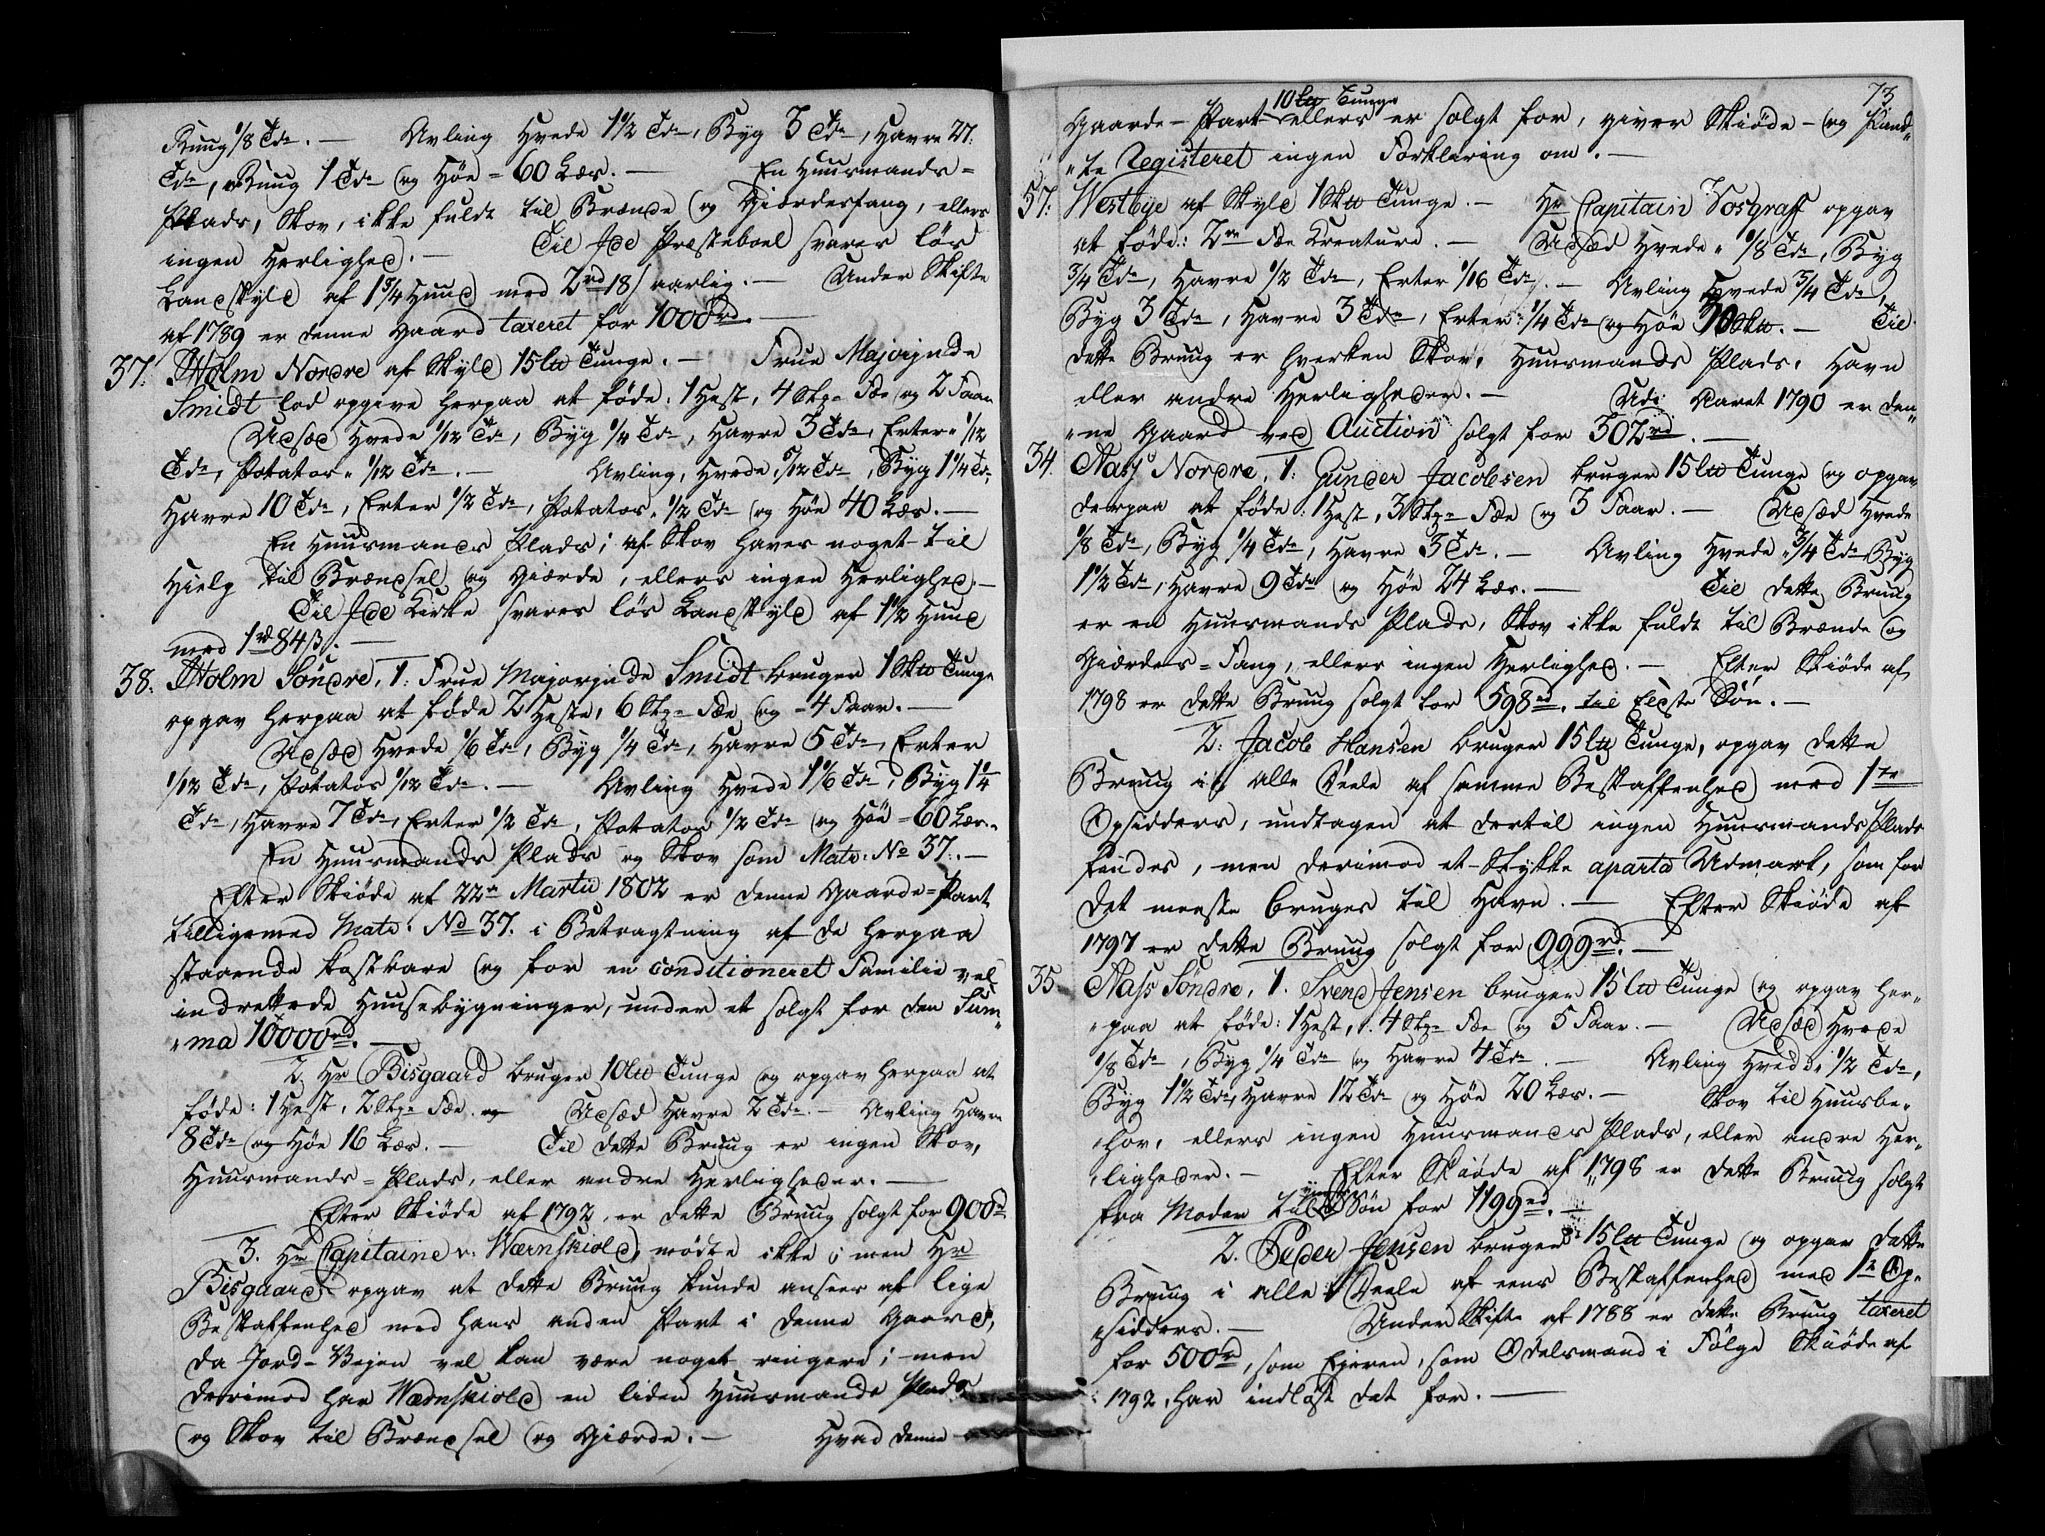 Ruug 1/8 Tde. — Avling Hvede 1 1/2 Tde, Byg 3 Tde, Havre 27
Tde, Ruug 1 Tde og Höe = 60 Læs. — En Huusmands=
Plads, Skov, ikke fuldt til Brænde og Giærdesfang, ellers
ingen Herlighed. — Til Ide Præsteboel svares lös
Landskyld af 1 3/4 Hund med 2 rd 18 s aarlig. — Under Skifte
af 1789 er denne Gaard taxeret for 1000 rd. —
37. Holm Nordre af Skyld 15 lis Tunge. — Frue Majorinde
Smidt lod opgive herpaa at föde: 1 Hest, 4 Stkr Fæ og 2 Faar
Udsæd Hvede 1/12 Tde, Byg 1/4 Tde, Havre 3 Tde, Erter 1/12
Tde, Potatos 1/12 Tde. — Avling, Hvede 5/12 Tde, Byg 1 1/4 Tde,
Havre 10 Tde, Erter 1/2 Tde, Potatos 1/2 Tde og Höe 40 Læs. —
En Huusmands Plads; af Skov haves noget til
Hielp til Brændsel og Giærde, ellers ingen Herlighed. —
Til Ide Kirke svares lös Landskyld af 1 1/2 Hund
med 1 rd 84 s. —
38. Holm Söndre, 1. Frue Majorinde Smidt bruger 1 Sk℔ Tunge
opgav herpaa at föde 2 Heste, 6 Stkr Fæ og 4 Faar. —
Udsæd Hvede 1/6 Tde, Byg 1/4 Tde, Havre 5 Tde, Erter
1/12 Tde, Potatos 1/12 Tde. — Avling Hvede 1 1/6 Tde, Byg 1 1/4
Tde, Havre 7 Tde, Erter 1/2 Tde, Potatos 1/2 Tde og Höe = 60 Læs. —
En Huusmands Plads og Skov som Matr: No 37. —
Efter Skiöde af 22de Martii 1802 er denne Gaarde=Part
tilligemed Matr: No 37. i Betragtning af de herpaa
staaende kostbare og for en conditioneret Familie vel
indrettede Huusebygninger, under et solgt for den Sum„
„ma 10000 rd. —
2. Hr Bisgaard bruger 10 lis Tunge og opgav herpaa at
föde: 1 Hest, 2 Stkr Fæ. Udsæd Havre 2 Tde. — Avling Havre
8 Tde og Höe 16 Læs. — Til dette Bruug er ingen Skov,
Huusmands=Plads, eller andre Herligheder. —
Efter Skiöde af 1792, er dette Bruug solgt for 900 rd
3. Hr Capitaine v. Wærnskiold, mödte ikke; men Hr
Bisgaard opgav at dette Bruug kunde ansees af lige
Beskaffenhed med hans anden Part i denne Gaard,
da Jord-Vejen vel kan være noget ringere; men
derimod har Wærnskiold en liden Huusmands Plads
og Skov til Brændsel og Giærde. — Hvad denne
73
10 lis Tunge
Gaarde-Part ellers er solgt for, giver Skiöde- og Pand„
„te Registeret ingen Forklaring om. —
57. Westbye af Skyld 1 Sk℔ Tunge. — Hr Capitain Vosgraff opgav
at föde: 2de Fæ Creature. — Udsæd Hvede 1/8 Tde, Byg
3/4 Tde, Havre 1/2 Tde, Erter 1/16 Tde. — Avling Hvede 3/4 Tde,
Byg 3 Tde, Havre 3 Tde, Erter 1/4 Tde og Höe 30 Sk℔. — Til
dette Bruug er hverken Skov, Huusmands Plads, Havn
eller andre Herligheder. — Udi Aaret 1790 er den„
„ne Gaard ved Auction solgt for 302 rd. —
34. Næss Nordre, 1. Gunder Jacobsen bruger 15 lis Tunge og opgav
derpaa at föde: 1 Hest, 3 Stkr Fæ og 3 Faar. — Udsæd Hvede
1/8 Tde, Byg 1/4 Tde, Havre 3 Tde. — Avling Hvede 3/4 Tde, Byg
1 1/2 Tde, Havre 9 Tde og Höe 24 Læs. — Til dette Bruug
er en Huusmands Plads, Skov ikke fuldt til Brænde og
Giærdes=Fang, ellers ingen Herlighed. — Efter Skiöde af
1798 er dette Bruug solgt for 598 rd. til Eldste Sön. —
2. Jacob Hansen bruger 15 lis Tunge, opgav dette
Bruug i alle Deele af samme Beskaffenhed med 1te
Opsidders, undtagen at dertil ingen Huusmands Plads
findes, men derimod et Stykke aparte Udmark, som for
det meeste bruges til Havn. — Efter Skiöde af
1797 er dette Bruug solgt for 999 rd. —
35. Næss Söndre, 1. Svend Jensen bruger 15 lis Tunge og opgav her„
„paa at föde: 1 Hest, 4 Stkr Fæ og 5 Faar. — Udsæd Hvede
1/8 Tde, Byg 1/4 Tde og Havre 4 Tde. — Avling Hvede 1/2 Tde,
Byg 1 1/2 Tde, Havre 12 Tde og Höe 20 Læs. — Skov til Huusbe„
„hov, ellers ingen Huusmands Plads, eller andre Her„
„ligheder. — Efter Skiöde af 1798 er dette Bruug solgt
fra Moder til Sön for 1199 rd. —
2. Peder Jensen bruger 15 lis Tunge og opgav dette
Bruug i alle Deele af eens Beskaffenhed med 1te Op„
„sidders. — Under Skifte af 1788 er dette Bruug taxeret
for 500 rd, som Ejeren, som Odelsmand i Fölge Skiöde af
1792, har indlöst det for. —